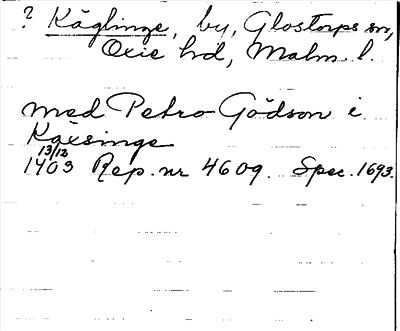 ? Käglinge, by, Glostorps sn,
Oxie hd, Malm. l.
med Petro Gödson i
Kaxsinge
13/12
1403 Rep. nr 4609. Spec. 1693.